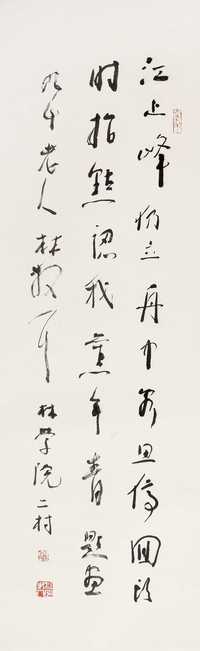 江上峰仍立舟中客且停回头
时指点认我旧年青题画
九十老人林散耳
林学院二村